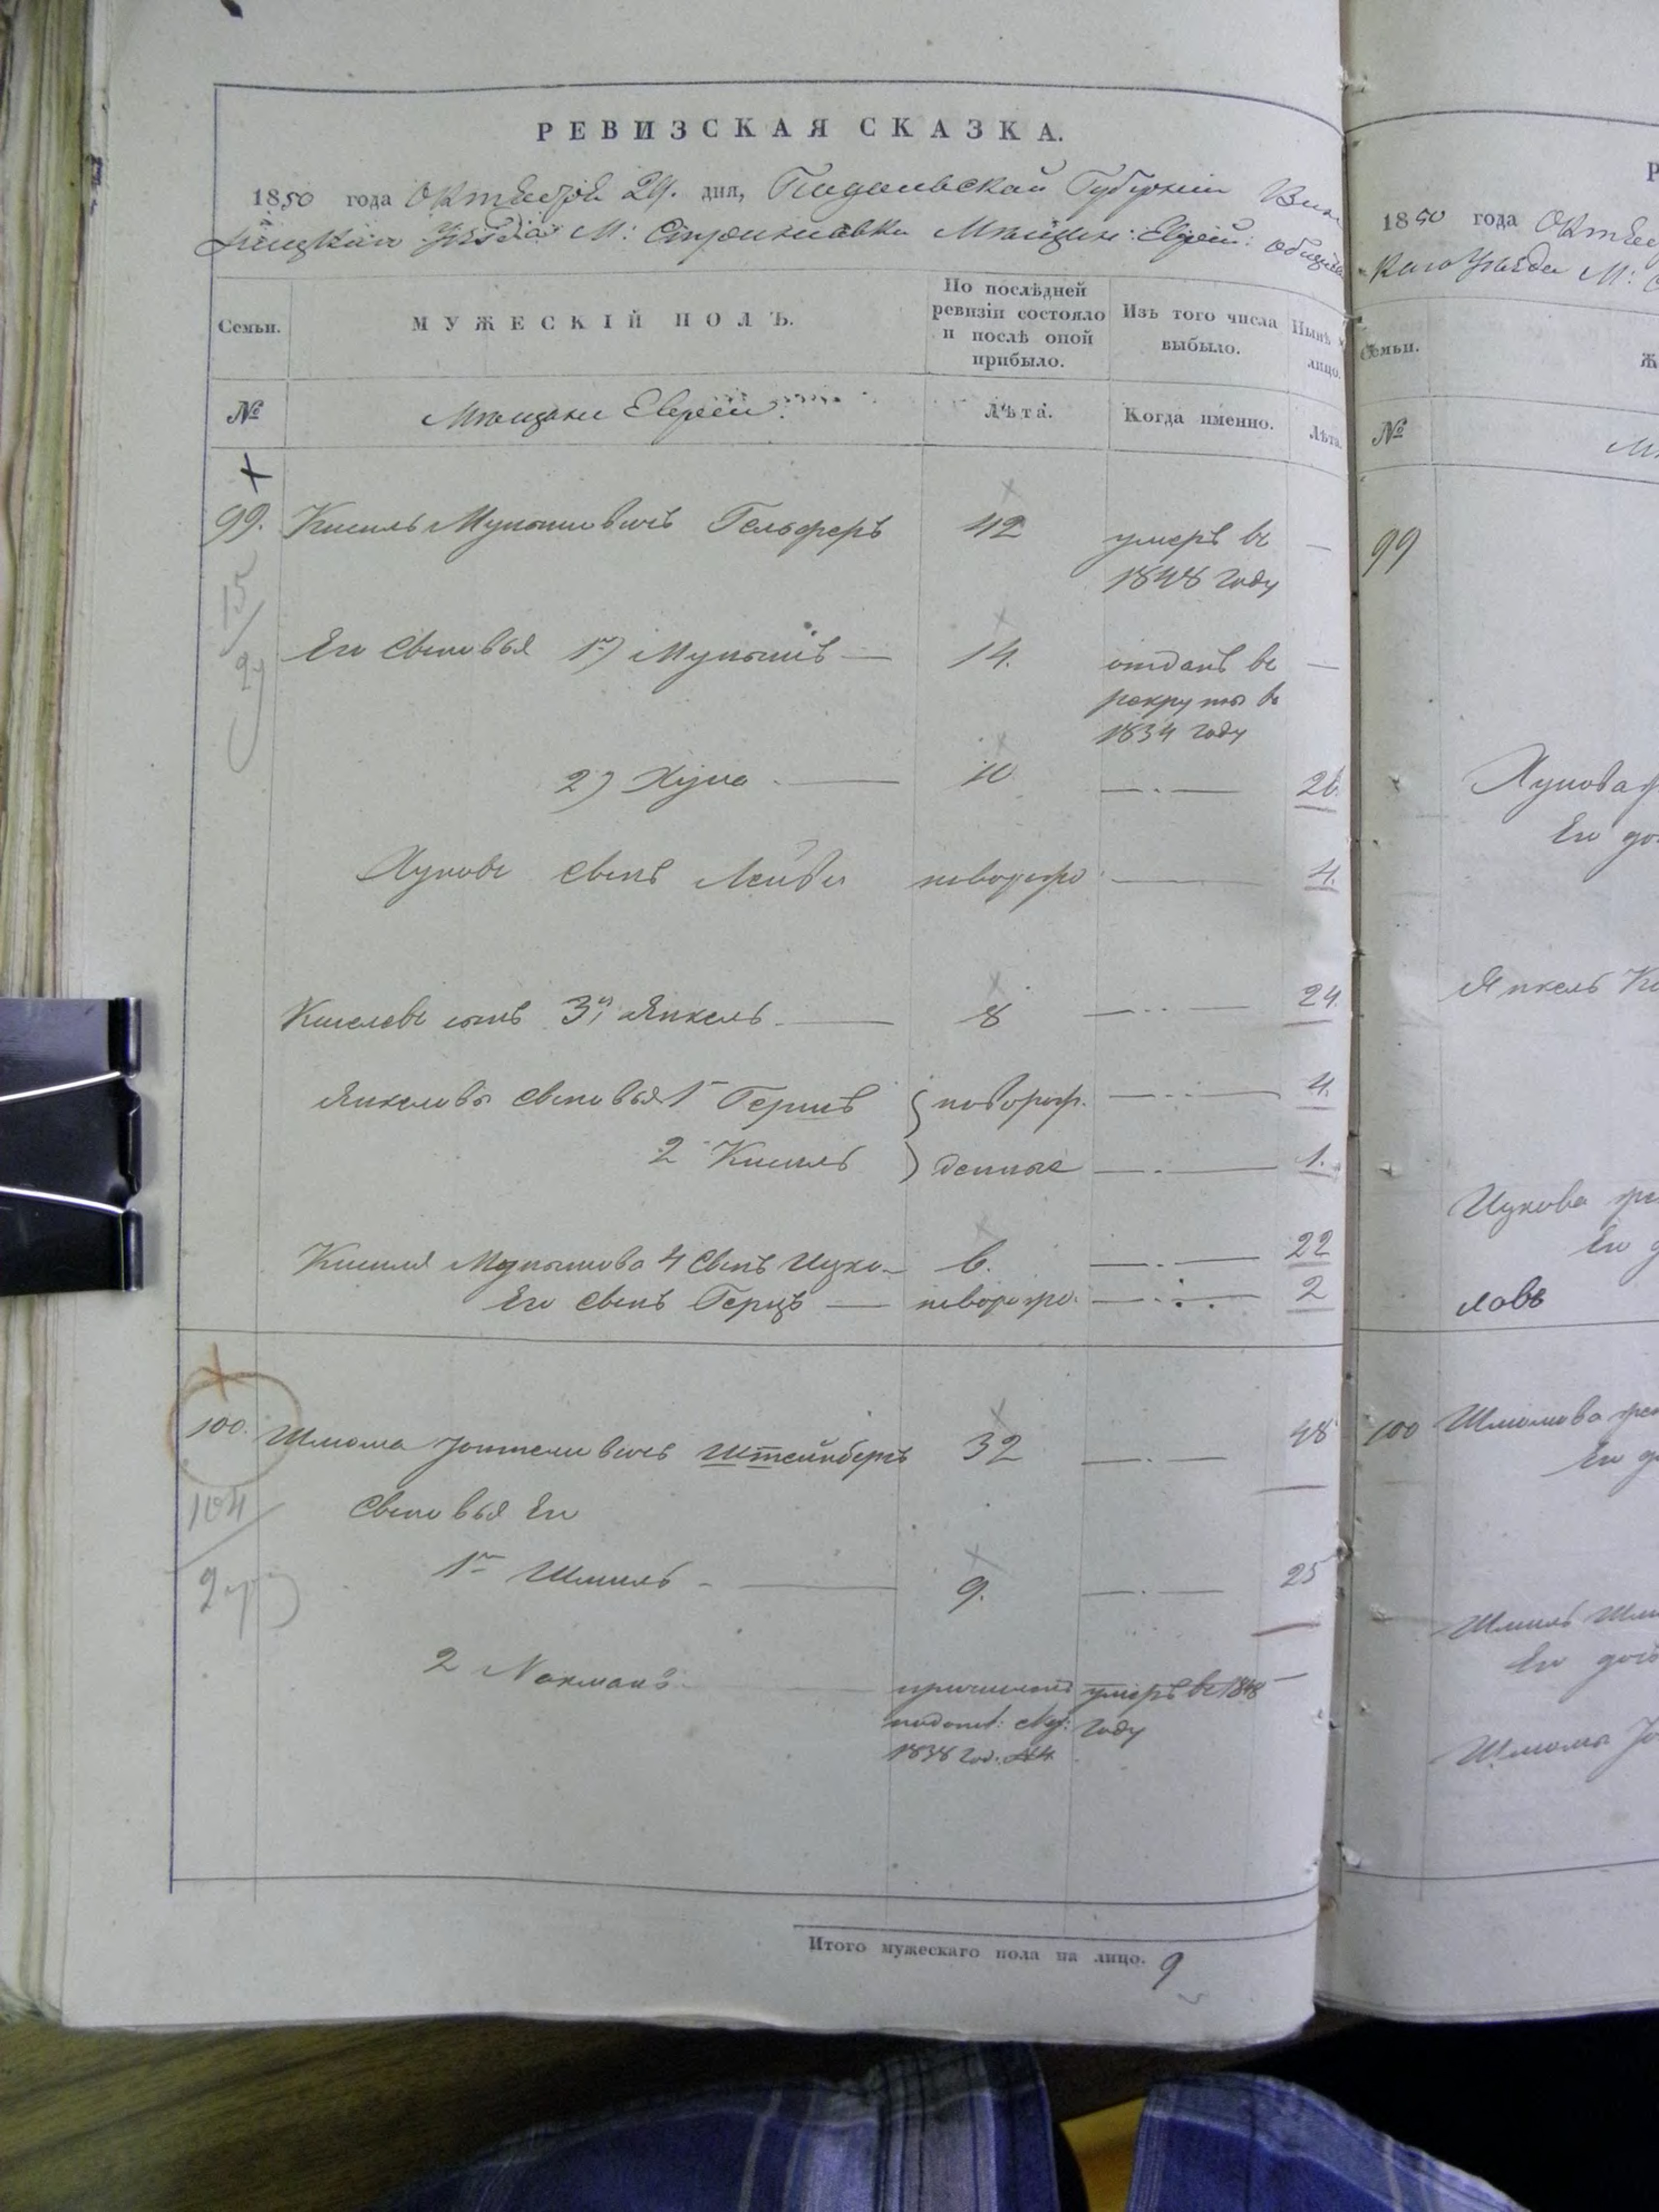 РЕВИЗСКАЯ СКАЗКА.
1850 года Октября 24. дня, Подольской Губернии Вин
ницкаго Уѣзда М: Стрижавки Мѣщан: Еврей: общес
Семьи.
МУЖЕСКІЙ ПОЛЪ.
По послѣдней ревизіи состояло и послѣ оной прибыло.
Изъ того числа выбыло.
Нынѣ лицо.
№
Мѣщане Евреи.
Лѣта.
Когда именно.
Лѣта.
99. Кисиль Мунышовичъ Гельферъ 42 умеръ въ —
1848 году
15
Его сыновья 1й) Мунышъ — 14. отданъ въ —
рекруты въ
1834 году
2) Хуна — 10 — 26.
Хуновъ сынъ Лейба новорож — 4.
Киселевъ сынъ 3й, Янкель — 8 — 24.
Янкелевы сыновья 1 Гершъ новорож. — 4.
2 Кисиль денные — 1.
Кисиля Мунышова 4 сынъ Ицко — 6. — 22
Его сынъ Герцъ — новорож. — 2
100. Шлиома Штейнберъ 32 — 48
104
Сыновья Его
1й Шмиль — 9. — 25
2 Нахманъ — умеръ въ 1848 —
году
1838 год. №4
Итого мужескаго пола на лицо. 9
Р
1850 года Октяб
каго Уѣзда М: С
Семьи.
Ж
№
М
99
Хунова ж
Его до
Янкель Ки
Ицкова же
Его д
ловъ
100 Шлиомова жен
Его д
Шмиль Шли
Его доч
Шлиомы